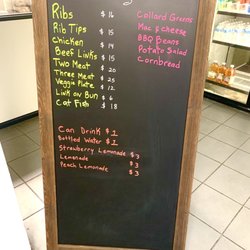 Ribs $16
Rib Tips $15
Chicken $14
Beef Links $15
Two Meat $20
Three Meat $25
Veggie Plate $12
Link on Bun $6
Cat Fish $18
Collard Greens
Mac & cheese
BBQ Beans
Potato Salad
Cornbread
Can Drink $1
Bottled Water $1
Strawberry Lemonade $3
Lemonade $3
Peach Lemonade $3